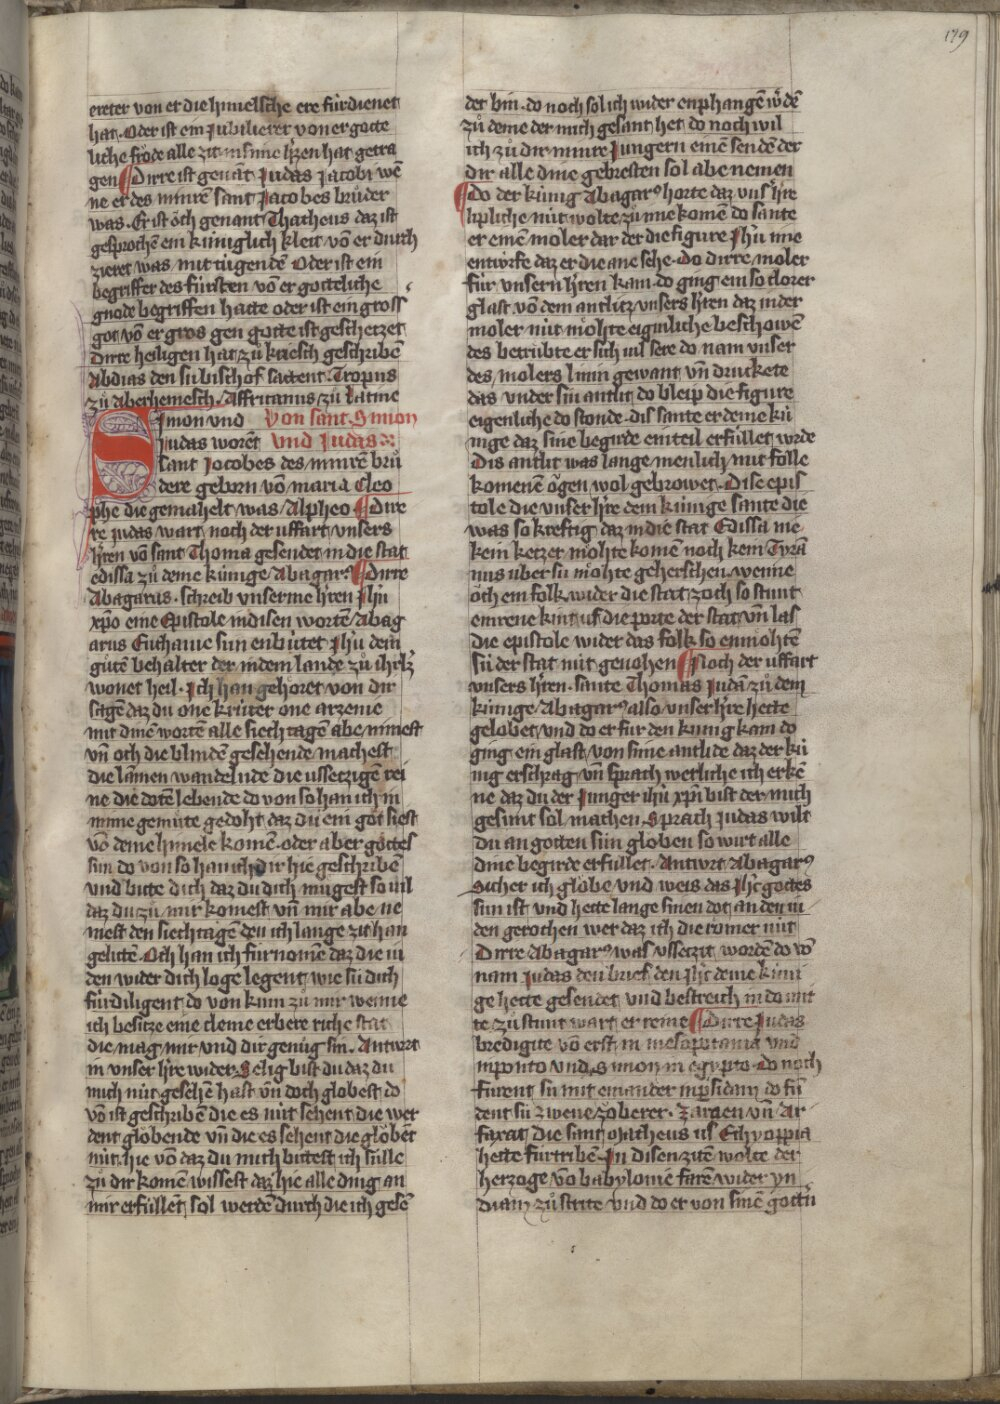 179
ereter von er die himelsche ere fürdienet
hat. Oder ist ein Jubilierer von er gotte
liche fröde alle zit in sinne hʒen hat getra
gen ¶ Dirre ist genāt Judas Jacobi wē
ne er des minrē sant Jacobes brůder
was. Er ist öch genant Thatheus daz ist
gesprochē ein küniglich kleit vō er durch
zieret was mit tügendē Oder ist ein
begriffer des fürsten vō er gottliche
gnode begriffen hatte oder ist ein gross
got vō er gros gen gotte ist geschetzet
Dirre heiligen hat zů kriesch geschribē
Abdias den su bischof sattent. Tropeus
zů Aberhemesch. Affricanus zů latine
Simon und Von sant Simon
Judas worēt und Judas
sant Jocobes des minrē brů
dere geborn vō maria Cleo
phe die gemahelt was Alpheo ¶ Dirre
re judas wart noch der uffart vnsers
h'ren vō sant Thoma gesendet in die stat
edissa zů deme künige Abagar9 ¶ Dirre
Abagarus. schreib vnserme h'ren Jhū
xp̄o eine Epistole in disen wortē Abag
arus Euchanie sun enbütet Jhū dem
gütē behalter der in dem lande zů ihrlz
wonet heil. Ich han gehöret von dir
sagē daz du one krüter one arzenie
mit dinē wortē alle siechtagē abe nimest
vn̄ och die blindē gesehende machest
die lamen wandelnde die ussetzigē rei
ne die dotē lebende do von so han ich in
mime gemüte gedoht daz du ein got siest
vō deme himele komē. oder aber gottes
sun do von so han ich dir hie geschribē
vnd bitte dich daz du dich mügest so vil
daz du zů mir komest vn̄ mir abe ne
mest den siechtagē den ich lange zit han
gelittē. Och han ich fürnomē daz die iu
den wider dich loge legent wie sü dich
fürdiligent do von kum zů mir wenne
ich besitze eine cleine erbere riche stat
die mag mir vnd dir genůg sin. Antwrt
in vnser h're wider. Selig bist du daz du
mich nüt gesehē hast vn̄ doch globest do
vō ist geschribē die es nüt sehent die wer
dent glöbende vn̄ die es sehent die glöbēt
nüt. hie vō daz du mich bittest ich sülle
zů dir komē wissest daz hie alle ding an
mir erfüllet sol werdē durch die ich gesē
der bin. do noch sol ich wider enphangē w'dē
zů deme der mich gesant het do noch wil
ich zů dir minre Jungern einē sendē der
dir alle dine gebresten sol abe nemen
¶ Do der künig Abagar9 horte daz vns h're
lipliche nüt wolte zů ime komē do sante
er einē moler dar der die figure Jhū ime
entwrfe daz er die ane sehe. Do dirre moler
für vnsern h'ren kam. do ging ein so clorer
glast vō dem antlitz vnsers h'ren daz in der
moler nüt mohte eiginliche beschowē
des betrübte er sich vil sere do nam vnser
des molers linin gewant vn̄ druckete
das vnder sin antlit do bleip die figure
eigenliche do stonde. dis sante er deme kü
nige daz sine begirde ein teil erfüllet w'rde
Dis antlit was lange menlich mit folle
komenē ögen wol gebrowet. Dise epis
tole die vnser h're dem künige sante die
was so kreftig daz in die stat Edissa ne
kein ketzer mohte komē noch kein Tyrā
nus über sü mohte geherschen. wenne
öch ein folk wider die stat zoch so stunt
ein reine kint uf die porte der stat vn̄ las
die epistole wider das folk so enmohtē
sü der stat nüt genohen ¶ Noch der uffart
vnsers h'ren. sante Thomas Judā zů dem
künige Abagar9 also vnser h're hette
gelobet vnd do er für den künig kam do
ging ein glast von sime antlide daz der kü
nig erschrag vn̄ sprach werliche ich erkē
ne daz du der Junger ihū xp̄i bist der mich
gesunt sol machen. Sprach Judas wilt
du an gotten sün globen so wirt alle
dine begirde erfüllet. Antwrt Abagar9
Sicher ich glöbe vnd weis das Jhc gottes
sun ist vnd hette lange sinen dot an den iu
den gerochen wer daz ich die römer nüt
Dirre Abagar9 was vssetzit wordē do vō
nam Judas den brief den Jhc deme küni
ge hette gesendet vnd bestreich in do mit
te zů stunt wart er reine ¶ Dirre Judas
bredigite vō erst in mesopotania vnd
in ponto vnd Simon in egypto. Do noch
fürent sü mit einander in p̄sidam do fun
dent sü zwene zöberer. Zaroen vn̄ Ar
faxat die sant Matheus us Ethyoppia
hette fürtribē. In disen zitē wolte der
herzoge vō babylonie farē wider yn
diam zů strite vnd do er von sinē göttū